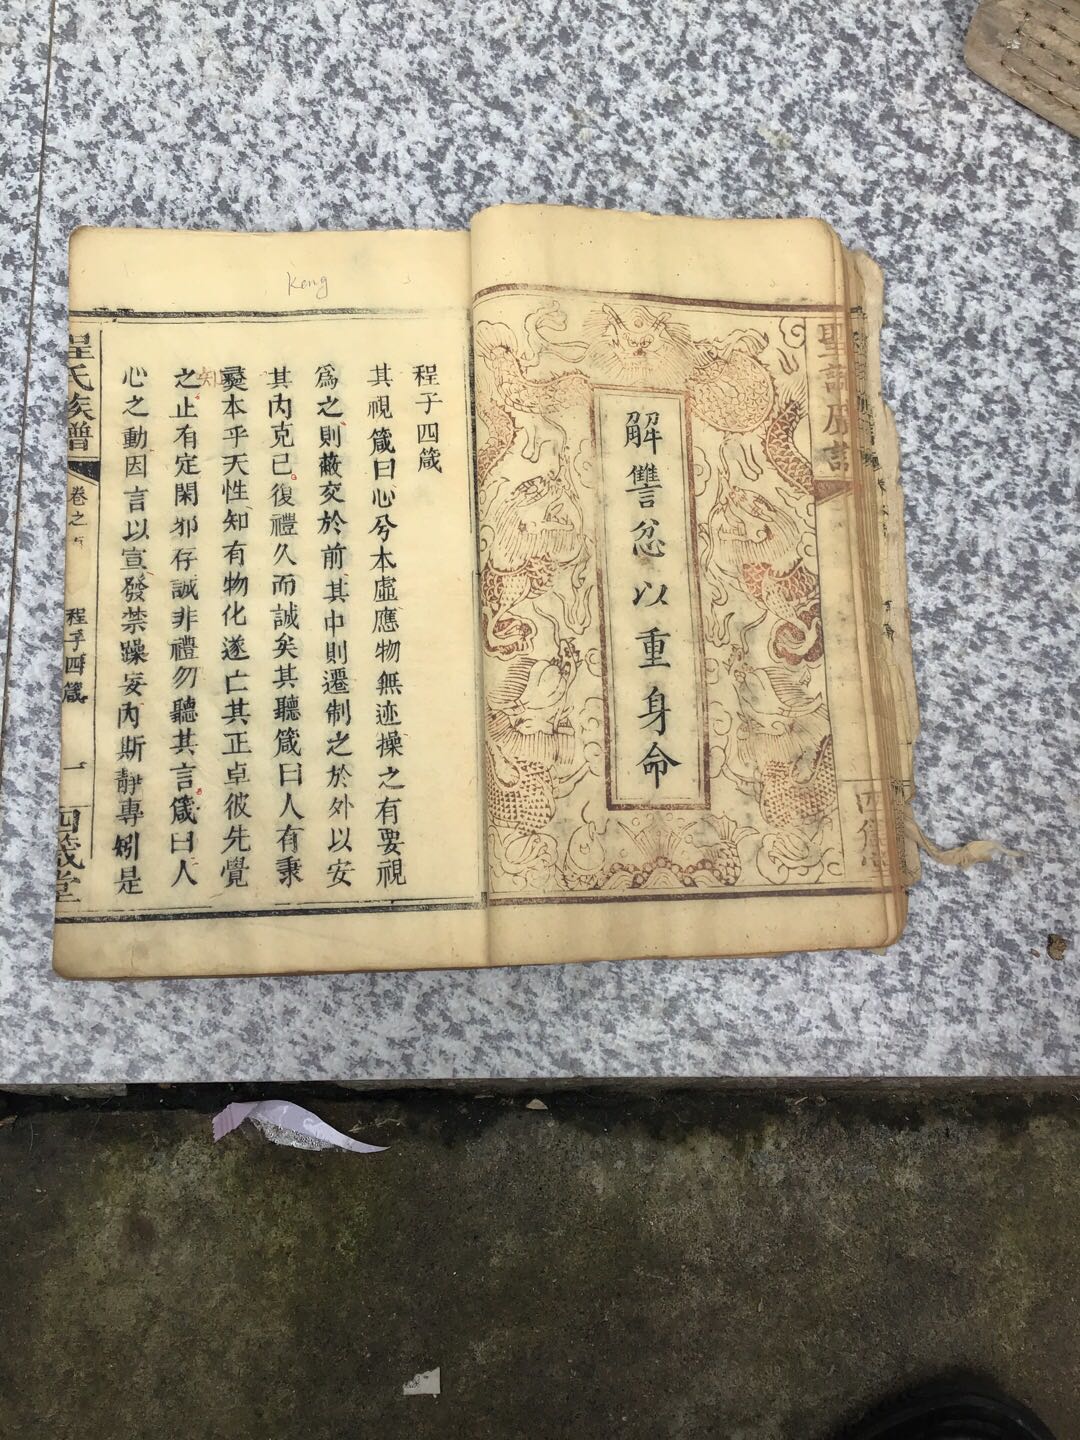 聖諭廣訓
解讐忿以重身命
四箴堂
keng
程子四箴
其視箴曰心兮本虛應物無迹操之有要視
為之則蔽交於前其中則遷制之於外以安
其內克己復禮久而誠矣其聽箴曰人有秉
彜本乎天性知有物化遂亡其正卓彼先覺
知
之止有定閑邪存誠非禮勿聽其言箴曰人
心之動因言以宣發禁躁妄內斯靜專矧是
程氏族譜
卷之
程子四箴
一
四箴堂